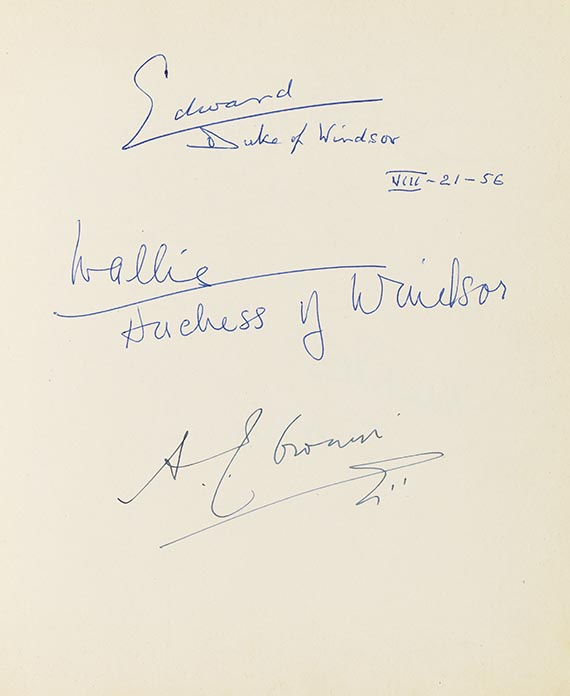 Edward
Duke of Windsor
VIII-21-56
Wallis
Duchess of Windsor
A. E.